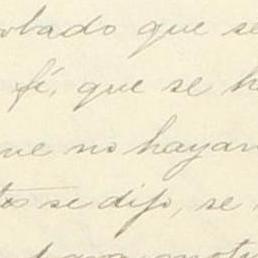 obado que se
fé, que se h
ue no hayan
tos se dijo, se